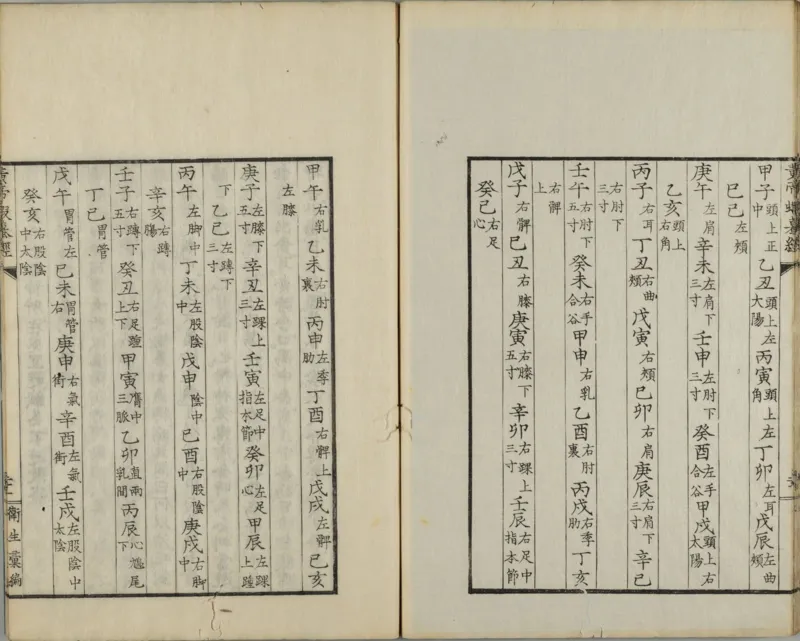 黃帝蝦蟇經
甲子頭上正中乙丑頭上左大陽丙寅頭上左角丁卯左耳戊辰左曲頰
巳巳左頰
庚午左肩辛未左肩下三寸壬申左肘下三寸癸酉左手合谷甲戌頭上右太陽
乙亥頭上右角
丙子右耳丁丑右曲頰戊寅右頰巳卯右肩庚辰右肩下三寸辛巳
右肘下三寸
壬午右肘下五寸癸未右手合谷甲申右乳乙酉右肘裏丙戌右季肋丁亥
右髀上
戊子右髀巳丑右膝庚寅右膝下五寸辛卯右踝上三寸壬辰右足中指本節
癸巳右足心
甲午右乳乙未右肘裏丙申左季肋丁酉右髀上戊戌左髀巳亥
左膝
庚子左膝下五寸辛丑左踝上三寸壬寅左足中指本節癸卯左足心甲辰左踝上踵
下乙巳左蹲下三寸
丙午左脚中丁未左股陰中戊申陰中巳酉右股陰中庚戌右脚中
辛亥右蹲腸
壬子右蹲下五寸癸丑右足踵上下甲寅膺中三脈乙卯直兩乳間丙辰心鳩尾下
丁巳胃管
戊午胃管左巳未胃管右庚申右氣街辛酉左氣街壬戌左股陰中太陰
癸亥右股陰中太陰
黃帝蝦蟇經
衛生彙編